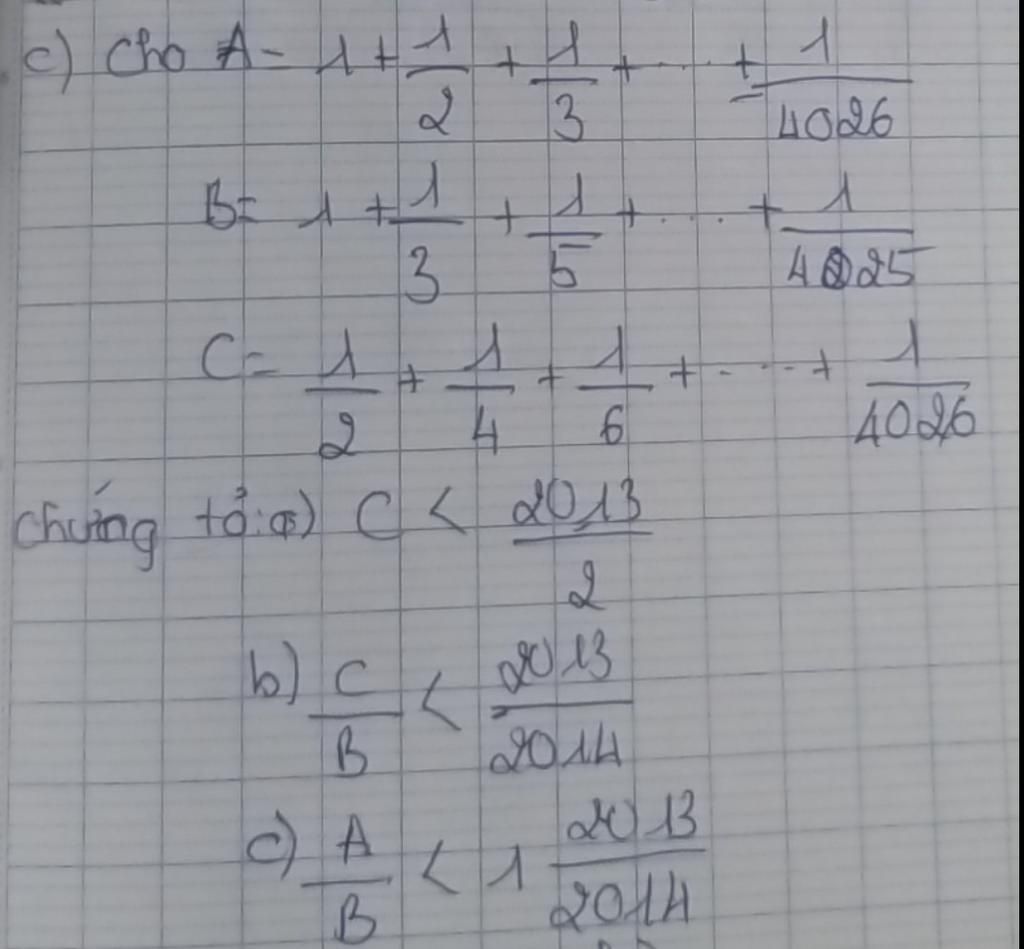 c) Cho A = 1 + 1/2 + 1/3 + ... + 1/4026
B = 1 + 1/3 + 1/5 + ... + 1/4025
C = 1/2 + 1/4 + 1/6 + ... + 1/4026
chứng tỏ: a) C < 2013/2
b) C/B < 2013/2014
c) A/B < 1 2013/2014